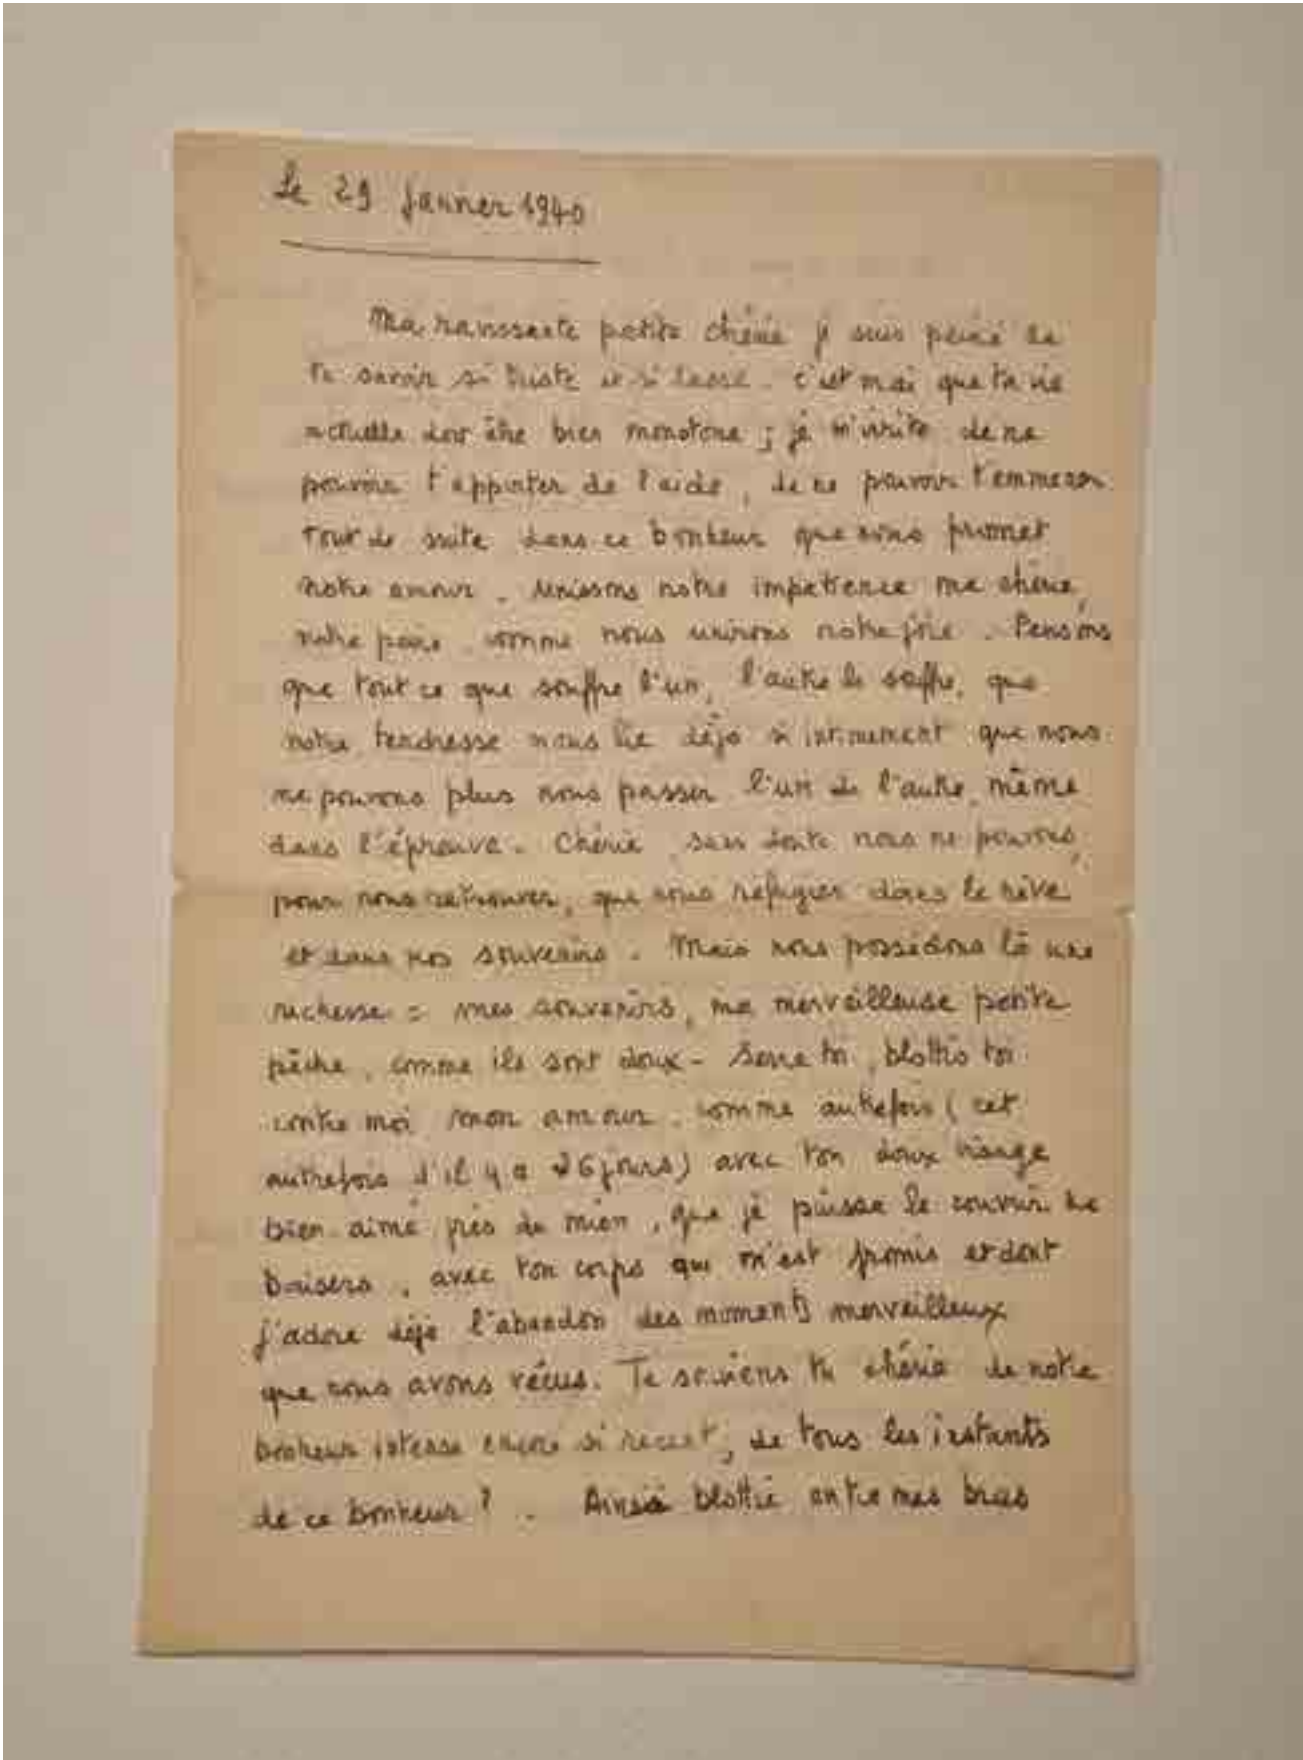 Le 29 janvier 1940
Ma ravissante petite chérie je suis peiné de
te savoir si triste et si lasse. c'est vrai que ta vie
actuelle doit être bien monotone ; je m'irrite de ne
pouvoir t'apporter de l'aide, de ne pouvoir t'emmener
tout de suite dans ce bonheur que nous promet
notre amour. Unissons notre impatience ma chérie,
notre peine comme nous unirons notre joie. Pensons
que tout ce que souffre l'un, l'autre le souffre, que
notre tendresse nous lie déjà si intimement que nous
ne pouvons plus nous passer l'un de l'autre, même
dans l'épreuve. Chérie, sans doute nous ne pouvons,
pour nous retrouver, que nous réfugier dans le rêve
et dans nos souvenirs. Mais nous possédons là une
richesse : mes souvenirs, ma merveilleuse petite
pêche, comme ils sont doux - Serre toi, blottis toi
contre moi mon amour comme autrefois (cet
autrefois d'il y a 26 jours) avec ton doux visage
bien aimé près du mien, que je puisse le couvrir de
baisers, avec ton corps qui m'est promis et dont
j'adore déjà l'abandon des moments merveilleux
que nous avons vécus. Te souviens tu chérie de notre
bonheur intense encore si récent, de tous les instants
de ce bonheur ? . Ainsi blottie entre mes bras